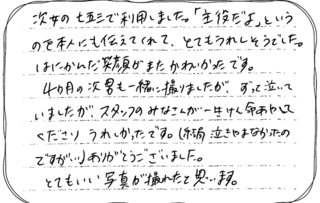 次女の七五三で利用しました。「主役だよ」という
ので本人にも伝えてくれて、とてもうれしそうでした。
はにかんだ笑顔がまたかわいかったです。
4カ月の次男も一緒に撮りましたが、ずっと泣いて
いましたが、スタッフのみなさんが一生けん命あやして
くださり うれしかったです。(結局 泣きやまなかったの
ですが…)ありがとうございました。
とてもいい写真が撮れたと思います。